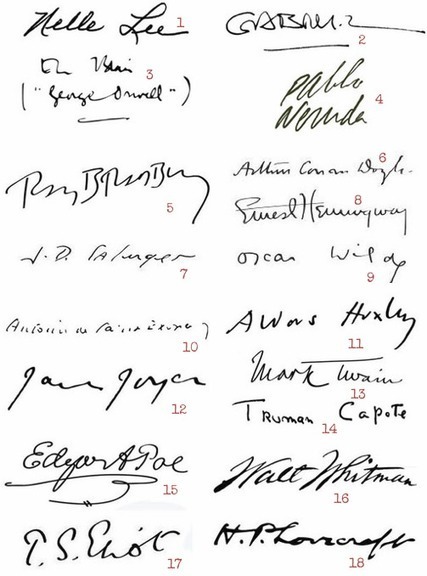 Nelle Lee 1
GABRIEL 2
Eric Blair 3
("George Orwell")
Pablo 4
Neruda
Ray Bradbury 5
Arthur Conan Doyle. 6
J. D. Salinger 7
Ernest Hemingway 8
Oscar Wilde 9
Antoine de Saint Exupéry 10
Aldous Huxley 11
James Joyce 12
Mark Twain 13
Truman Capote 14
Edgar A Poe 15
Walt Whitman 16
T. S. Eliot 17
H. P. Lovecraft 18